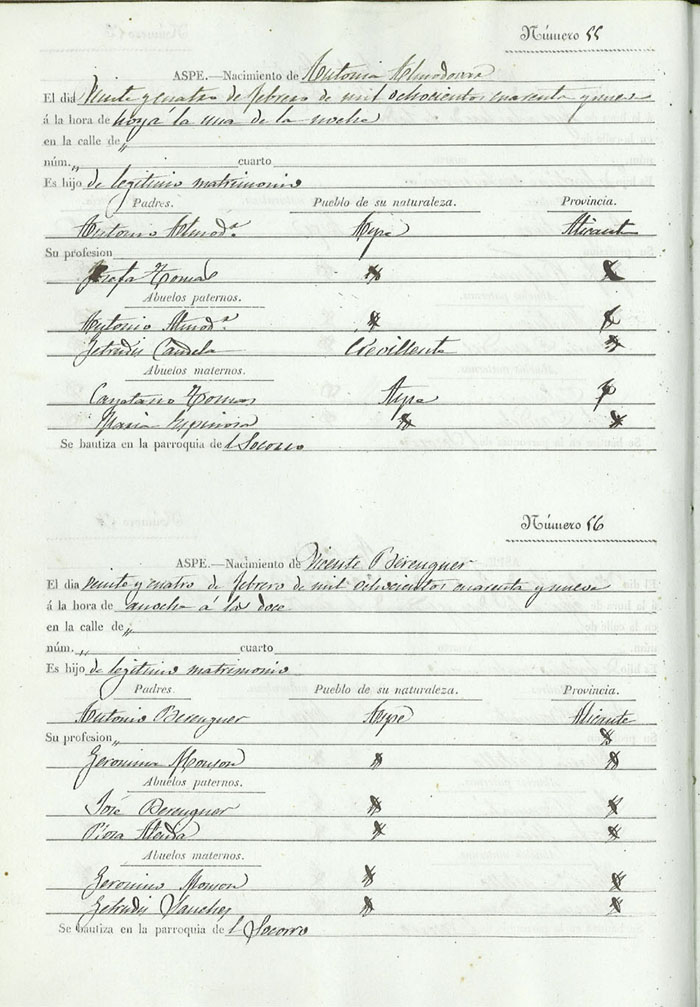 Número 55
ASPE.—Nacimiento de Antonia Almodovar
El dia Veinte y cuatro de febrero de mil ochocientos cuarenta y nueve
á la hora de hoy á la una de la noche
en la calle de „
núm. „ cuarto
Es hijo de legitimo matrimonio
Padres. Pueblo de su naturaleza. Provincia.
Antonio Almodª. Aspe Alicante
Su profesion
Josefa Tomas
Abuelos paternos.
Antonio Almodª.
Getrudis Candela Crevillente
Abuelos maternos.
Cayetano Tomas Aspe
Maria Espinosa
Se bautiza en la parroquia de l Socorro
Número 56
ASPE.—Nacimiento de Vicente Berenguer
El dia veinte y cuatro de febrero de mil ochocientos cuarenta y nueve
á la hora de anoche á las doce
en la calle de „
núm. „ cuarto
Es hijo de legitimo matrimonio
Padres Pueblo de su naturaleza. Provincia.
Antonio Berenguer Aspe Alicante
Su profesion „
Geronima Monzon
Abuelos paternos.
José Berenguer
Abuelos maternos.
Geronimo Monzon
Getrudis Sanches
Se bautiza en la parroquia de l Socorro